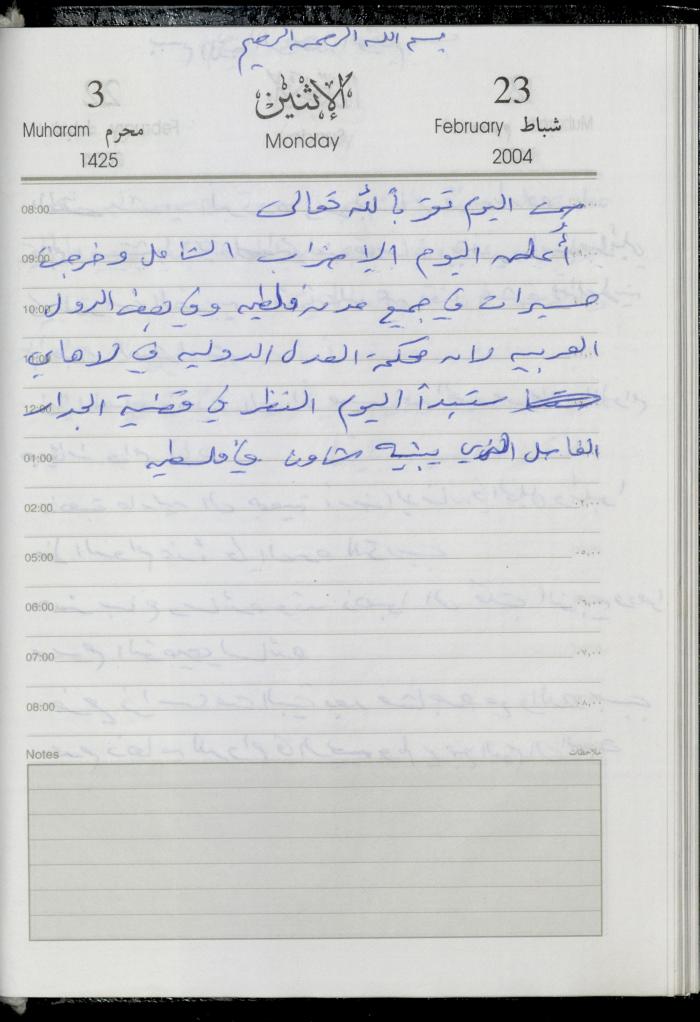 بسم الله الرحمن الرحيم
3 الإثنين 23
Muharam محرم Monday February شباط
1425 2004
08:00 اليوم بالله تعالى
09:00 أُعلن اليوم الإضراب الشامل وخرجت
10:00 مسيرات في جميع مدن فلسطين وفي بعض الدول
العربية لأن محكمة العدل الدولية في لاهاي
12:00 ستبدأ اليوم النظر في قضية الجدار
01:00 الفاصل الذي يبنيه شارون في فلسطين
02:00
05:00
06:00
07:00
08:00
Notes ملاحظات